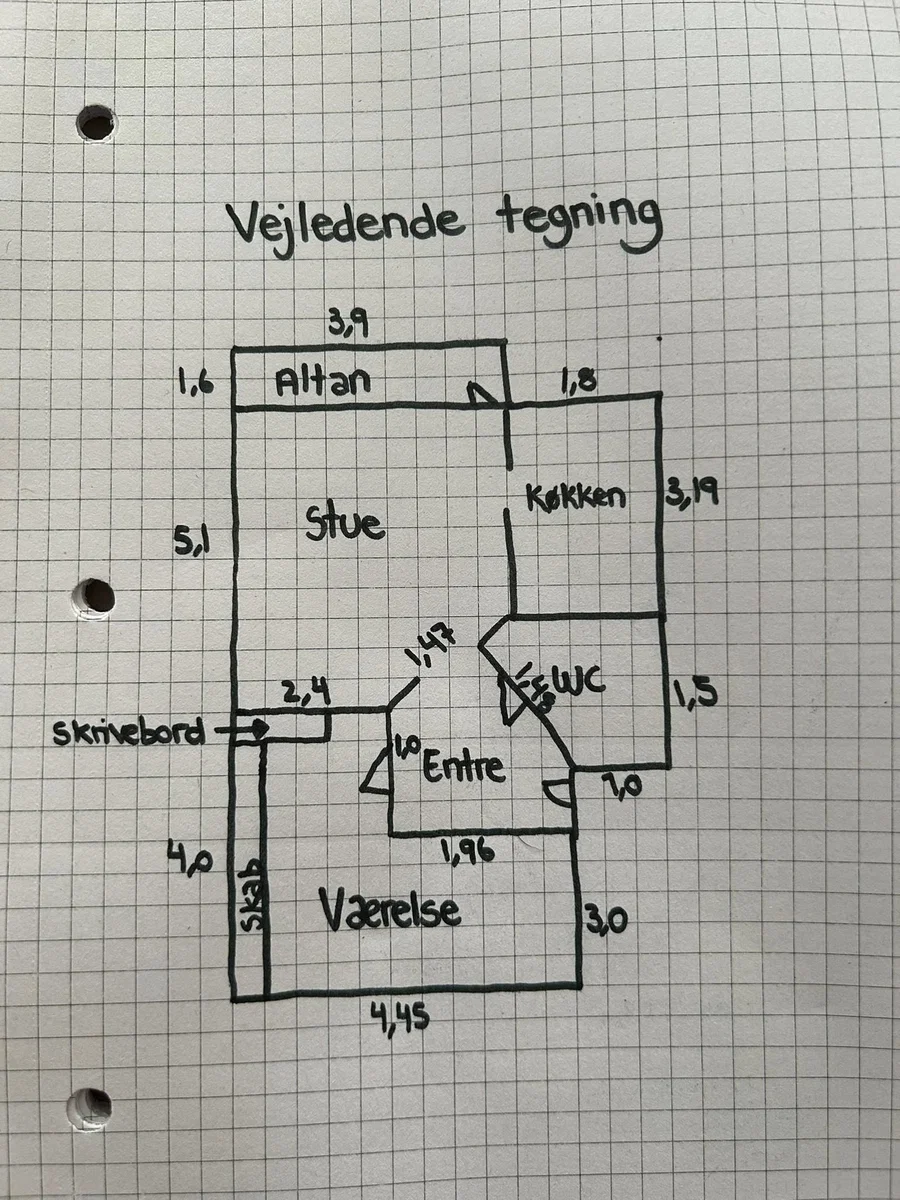 Vejledende tegning
3,9
1,6
Altan
1,8
Køkken
3,19
Stue
5,1
1,47
WC
1,5
2,4
Skrivebord
1,0
Entre
1,0
1,96
4,0
Skab
Værelse
3,0
4,45